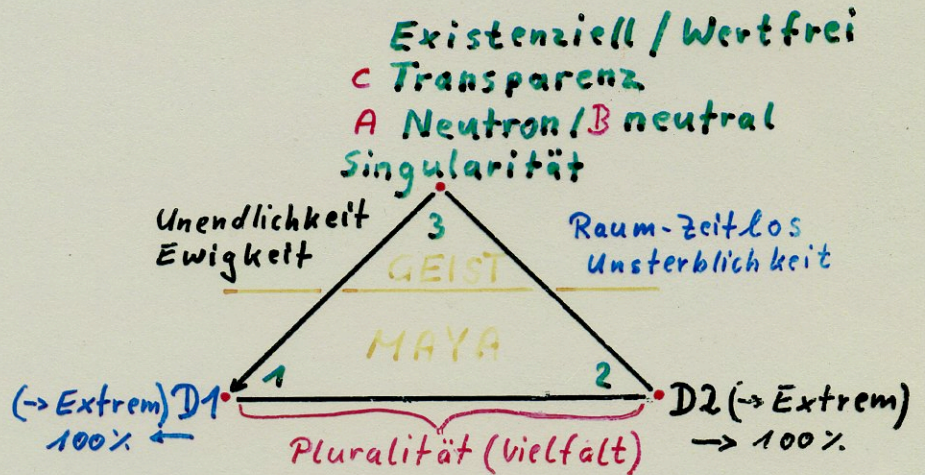 Existenziell / Wertfrei
C Transparenz
A Neutron / B neutral
Singularität
Unendlichkeit
Ewigkeit
3
Raum-Zeitlos
Unsterblichkeit
GEIST
MAYA
1
2
(→ Extrem) D1
100% ←
D2 (→ Extrem)
→ 100%
Pluralität (Vielfalt)